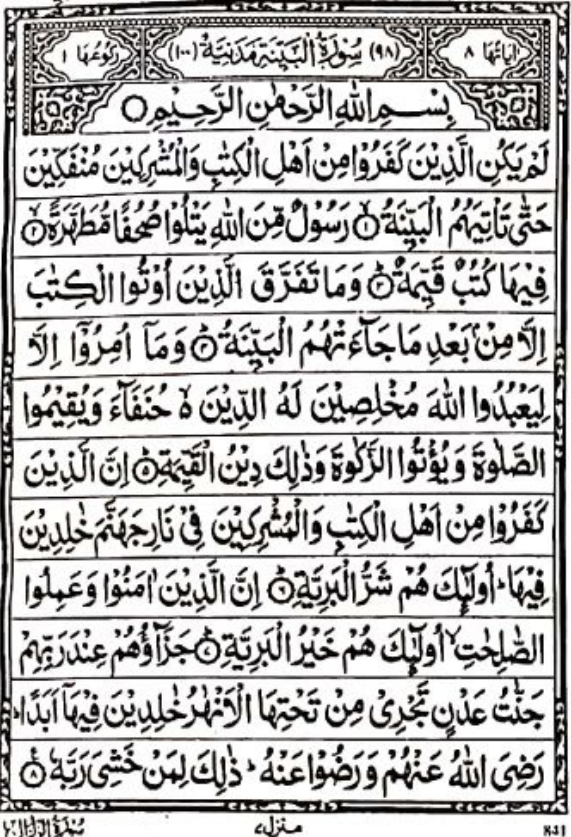 اٰيَاتُهَا ٨ (٩٨) سُوْرَةُ الْبَيِّنَةِ مَدَنِيَّةٌ (١٠٠) رُكُوْعُهَا ١
بِسْمِ اللهِ الرَّحْمٰنِ الرَّحِيْمِ
لَمْ يَكُنِ الَّذِيْنَ كَفَرُوْا مِنْ اَهْلِ الْكِتٰبِ وَالْمُشْرِكِيْنَ مُنْفَكِّيْنَ
حَتّٰى تَاْتِيَهُمُ الْبَيِّنَةُ ۙ‏﴿١﴾ رَسُوْلٌ مِّنَ اللهِ يَتْلُوْا صُحُفًا مُّطَهَّرَةً ۙ‏﴿٢﴾
فِيْهَا كُتُبٌ قَيِّمَةٌ ؕ‏﴿٣﴾ وَمَا تَفَرَّقَ الَّذِيْنَ اُوْتُوا الْكِتٰبَ
اِلَّا مِنْۢ بَعْدِ مَا جَآءَتْهُمُ الْبَيِّنَةُ ؕ‏﴿٤﴾ وَمَاۤ اُمِرُوْۤا اِلَّا
لِيَعْبُدُوا اللهَ مُخْلِصِيْنَ لَهُ الدِّيْنَ ۙ حُنَفَآءَ وَيُقِيْمُوا
الصَّلٰوةَ وَيُؤْتُوا الزَّكٰوةَ وَذٰلِكَ دِيْنُ الْقَيِّمَةِ ؕ‏﴿٥﴾ اِنَّ الَّذِيْنَ
كَفَرُوْا مِنْ اَهْلِ الْكِتٰبِ وَالْمُشْرِكِيْنَ فِيْ نَارِ جَهَنَّمَ خٰلِدِيْنَ
فِيْهَا ؕ اُولٰٓئِكَ هُمْ شَرُّ الْبَرِيَّةِ ؕ‏﴿٦﴾ اِنَّ الَّذِيْنَ اٰمَنُوْا وَعَمِلُوا
الصّٰلِحٰتِ ۙ اُولٰٓئِكَ هُمْ خَيْرُ الْبَرِيَّةِ ؕ‏﴿٧﴾ جَزَآؤُهُمْ عِنْدَ رَبِّهِمْ
جَنّٰتُ عَدْنٍ تَجْرِيْ مِنْ تَحْتِهَا الْاَنْهٰرُ خٰلِدِيْنَ فِيْهَاۤ اَبَدًا ؕ
رَضِيَ اللهُ عَنْهُمْ وَرَضُوْا عَنْهُ ؕ ذٰلِكَ لِمَنْ خَشِيَ رَبَّهٗ ‏﴿٨﴾
منزل ٧
841